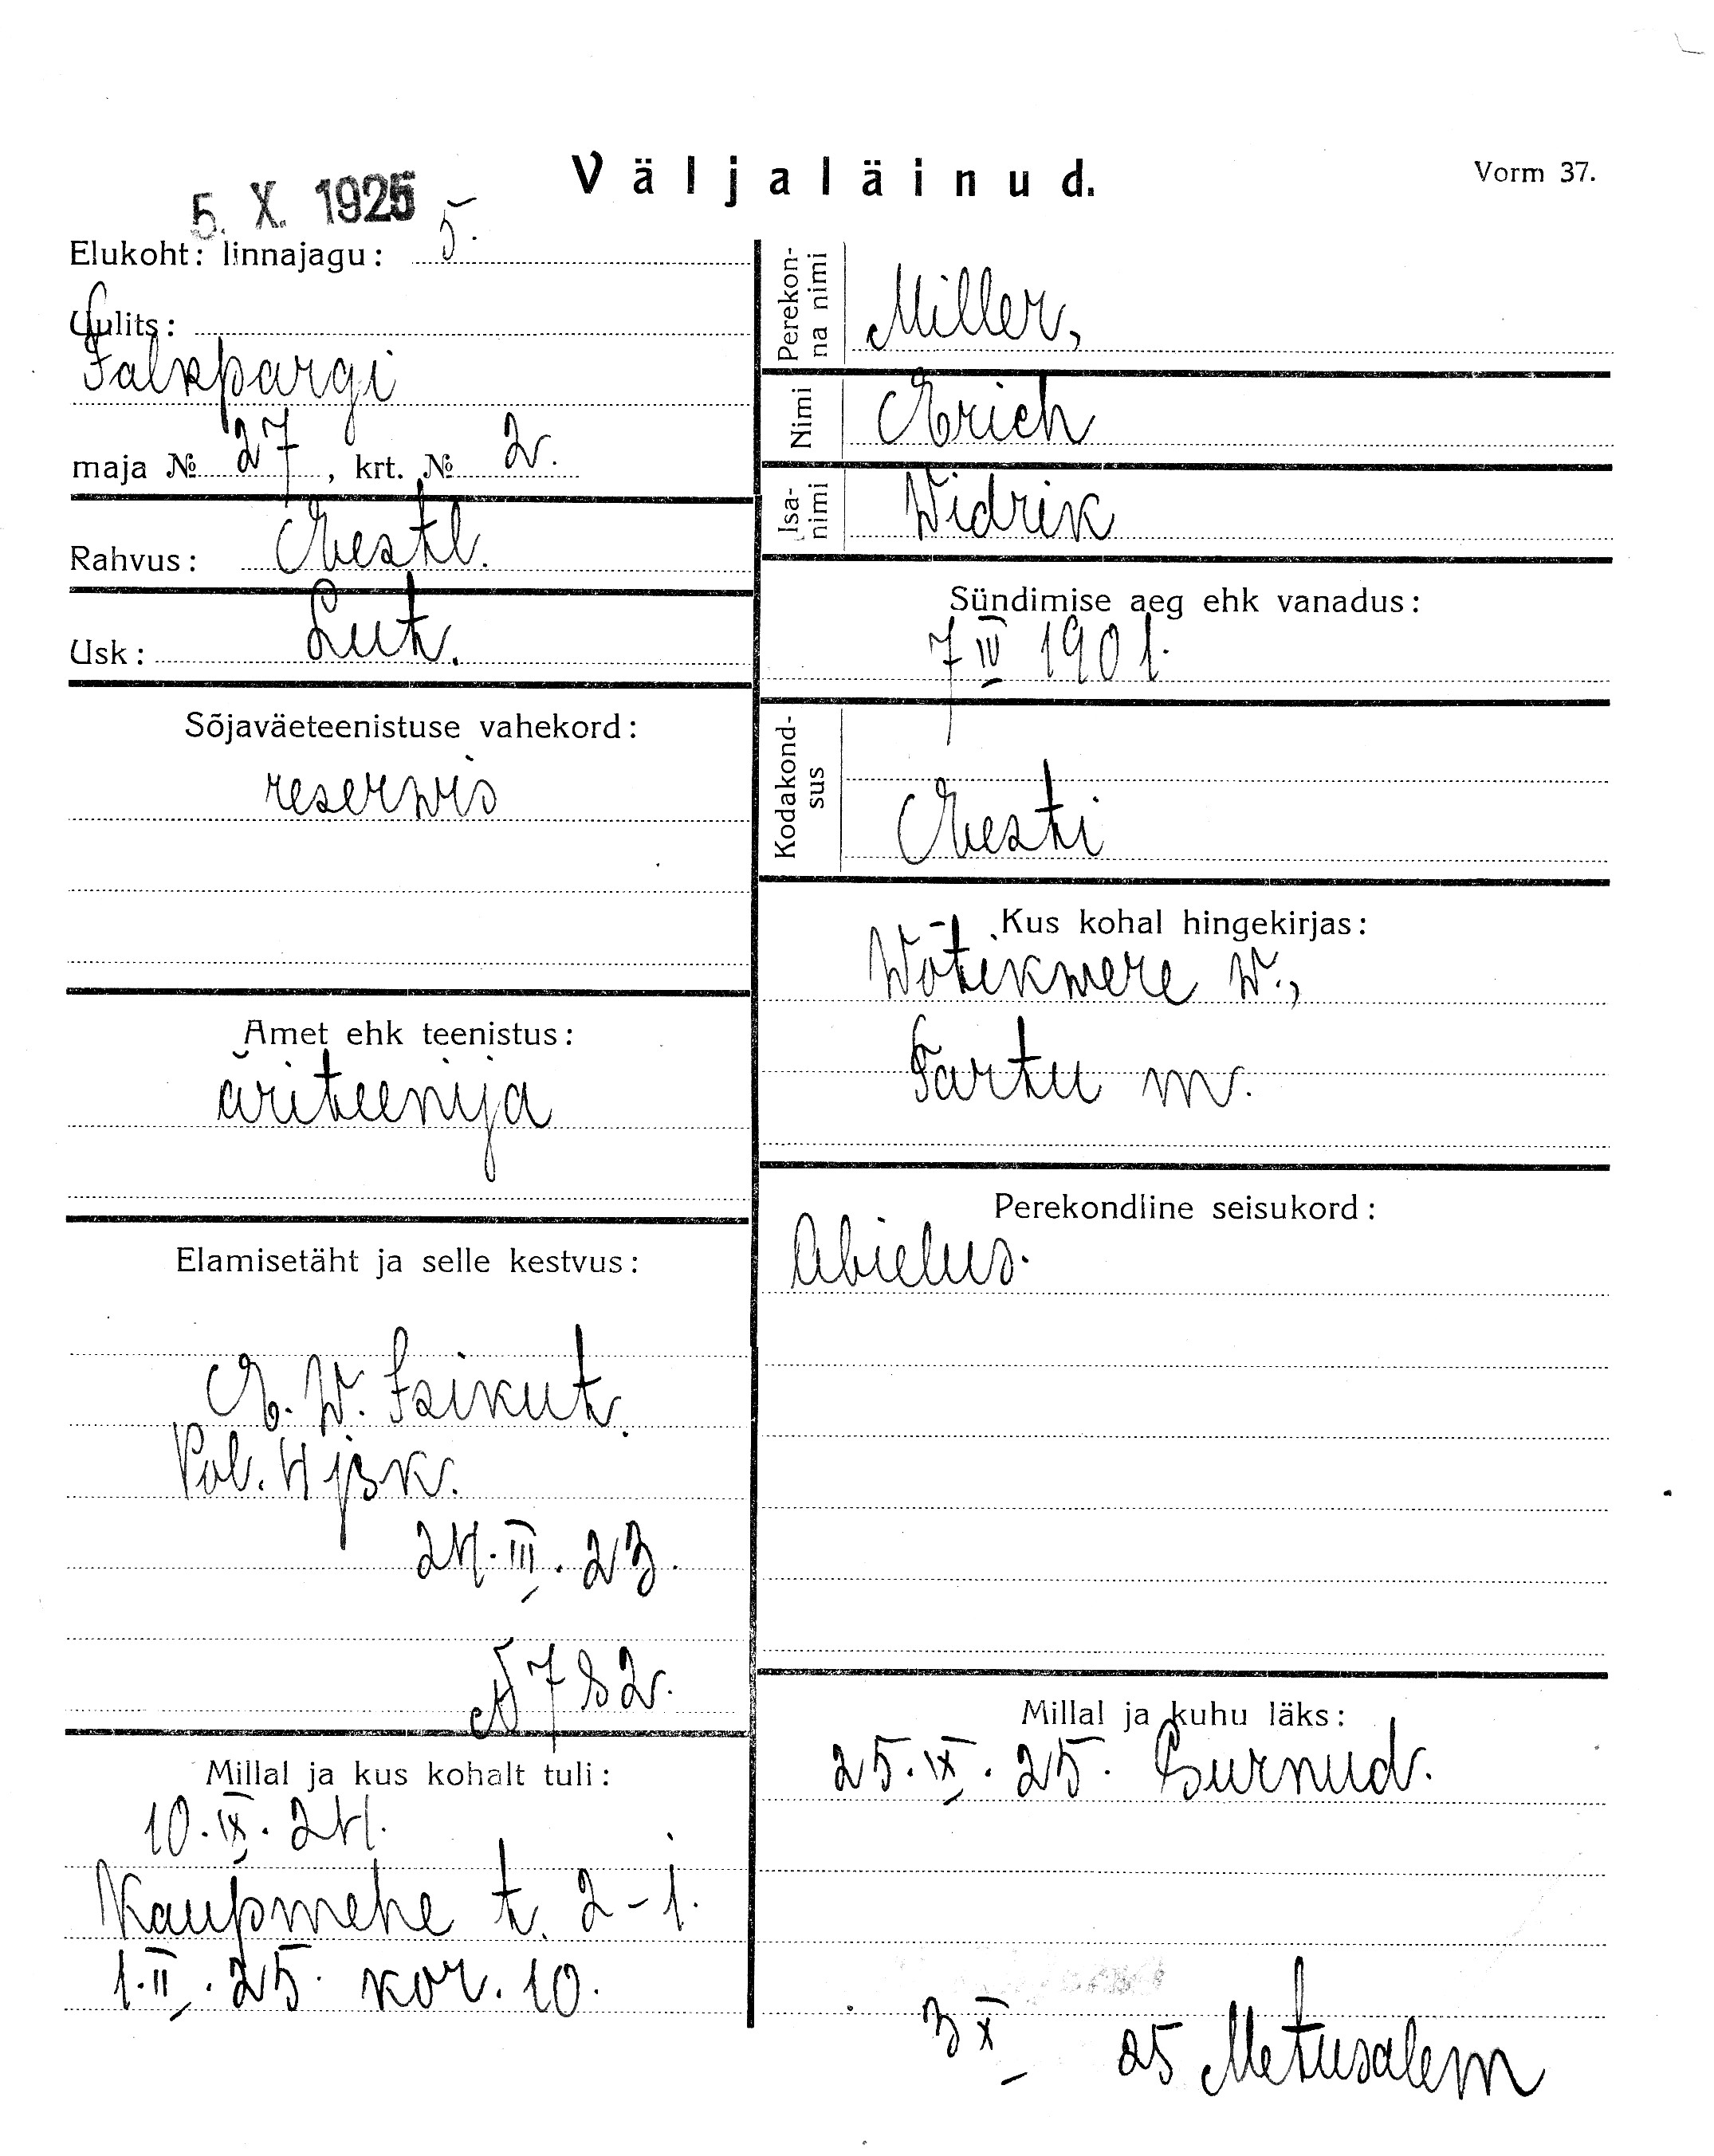 Väljaläinud.
Vorm 37.
5. X. 1925
Elukoht: linnajagu: 5.
Uulits:
Falkpargi
maja № 27, krt. № 2.
Rahvus: Eestl.
Usk: Lut.
Sõjaväeteenistuse vahekord:
reserwis
Amet ehk teenistus:
äriteenija
Elamisetäht ja selle kestvus:
E. W. Isikut.
Pol. 4 jsk.
24. III. 23.
№ 782.
Millal ja kus kohalt tuli:
10. IX. 24.
Kaupmehe t. 2-1.
1. II. 25. kor. 10.
Perekonna nimi
Miller,
Nimi
Erich
Isanimi
Widrik
Sündimise aeg ehk vanadus:
7 IV 1901.
Kodakondsus
Eesti
Kus kohal hingekirjas:
Wõtikwere w.,
Tartu m.
Perekondline seisukord:
Abielus.
Millal ja kuhu läks:
25. IX. 25. Surnud.
3 X 25 Metusalem